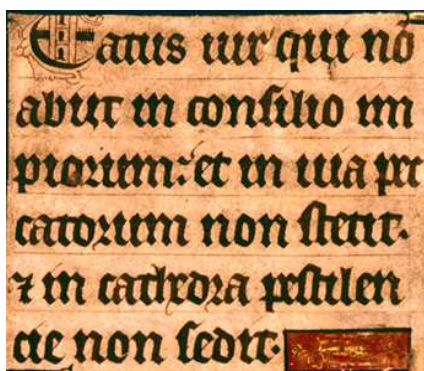 Eatus uir qui nō
abiit in consilio im
piorum: et in uia pec
catorum non stetit.
⁊ in cathedra pestilen
cie non sedit.